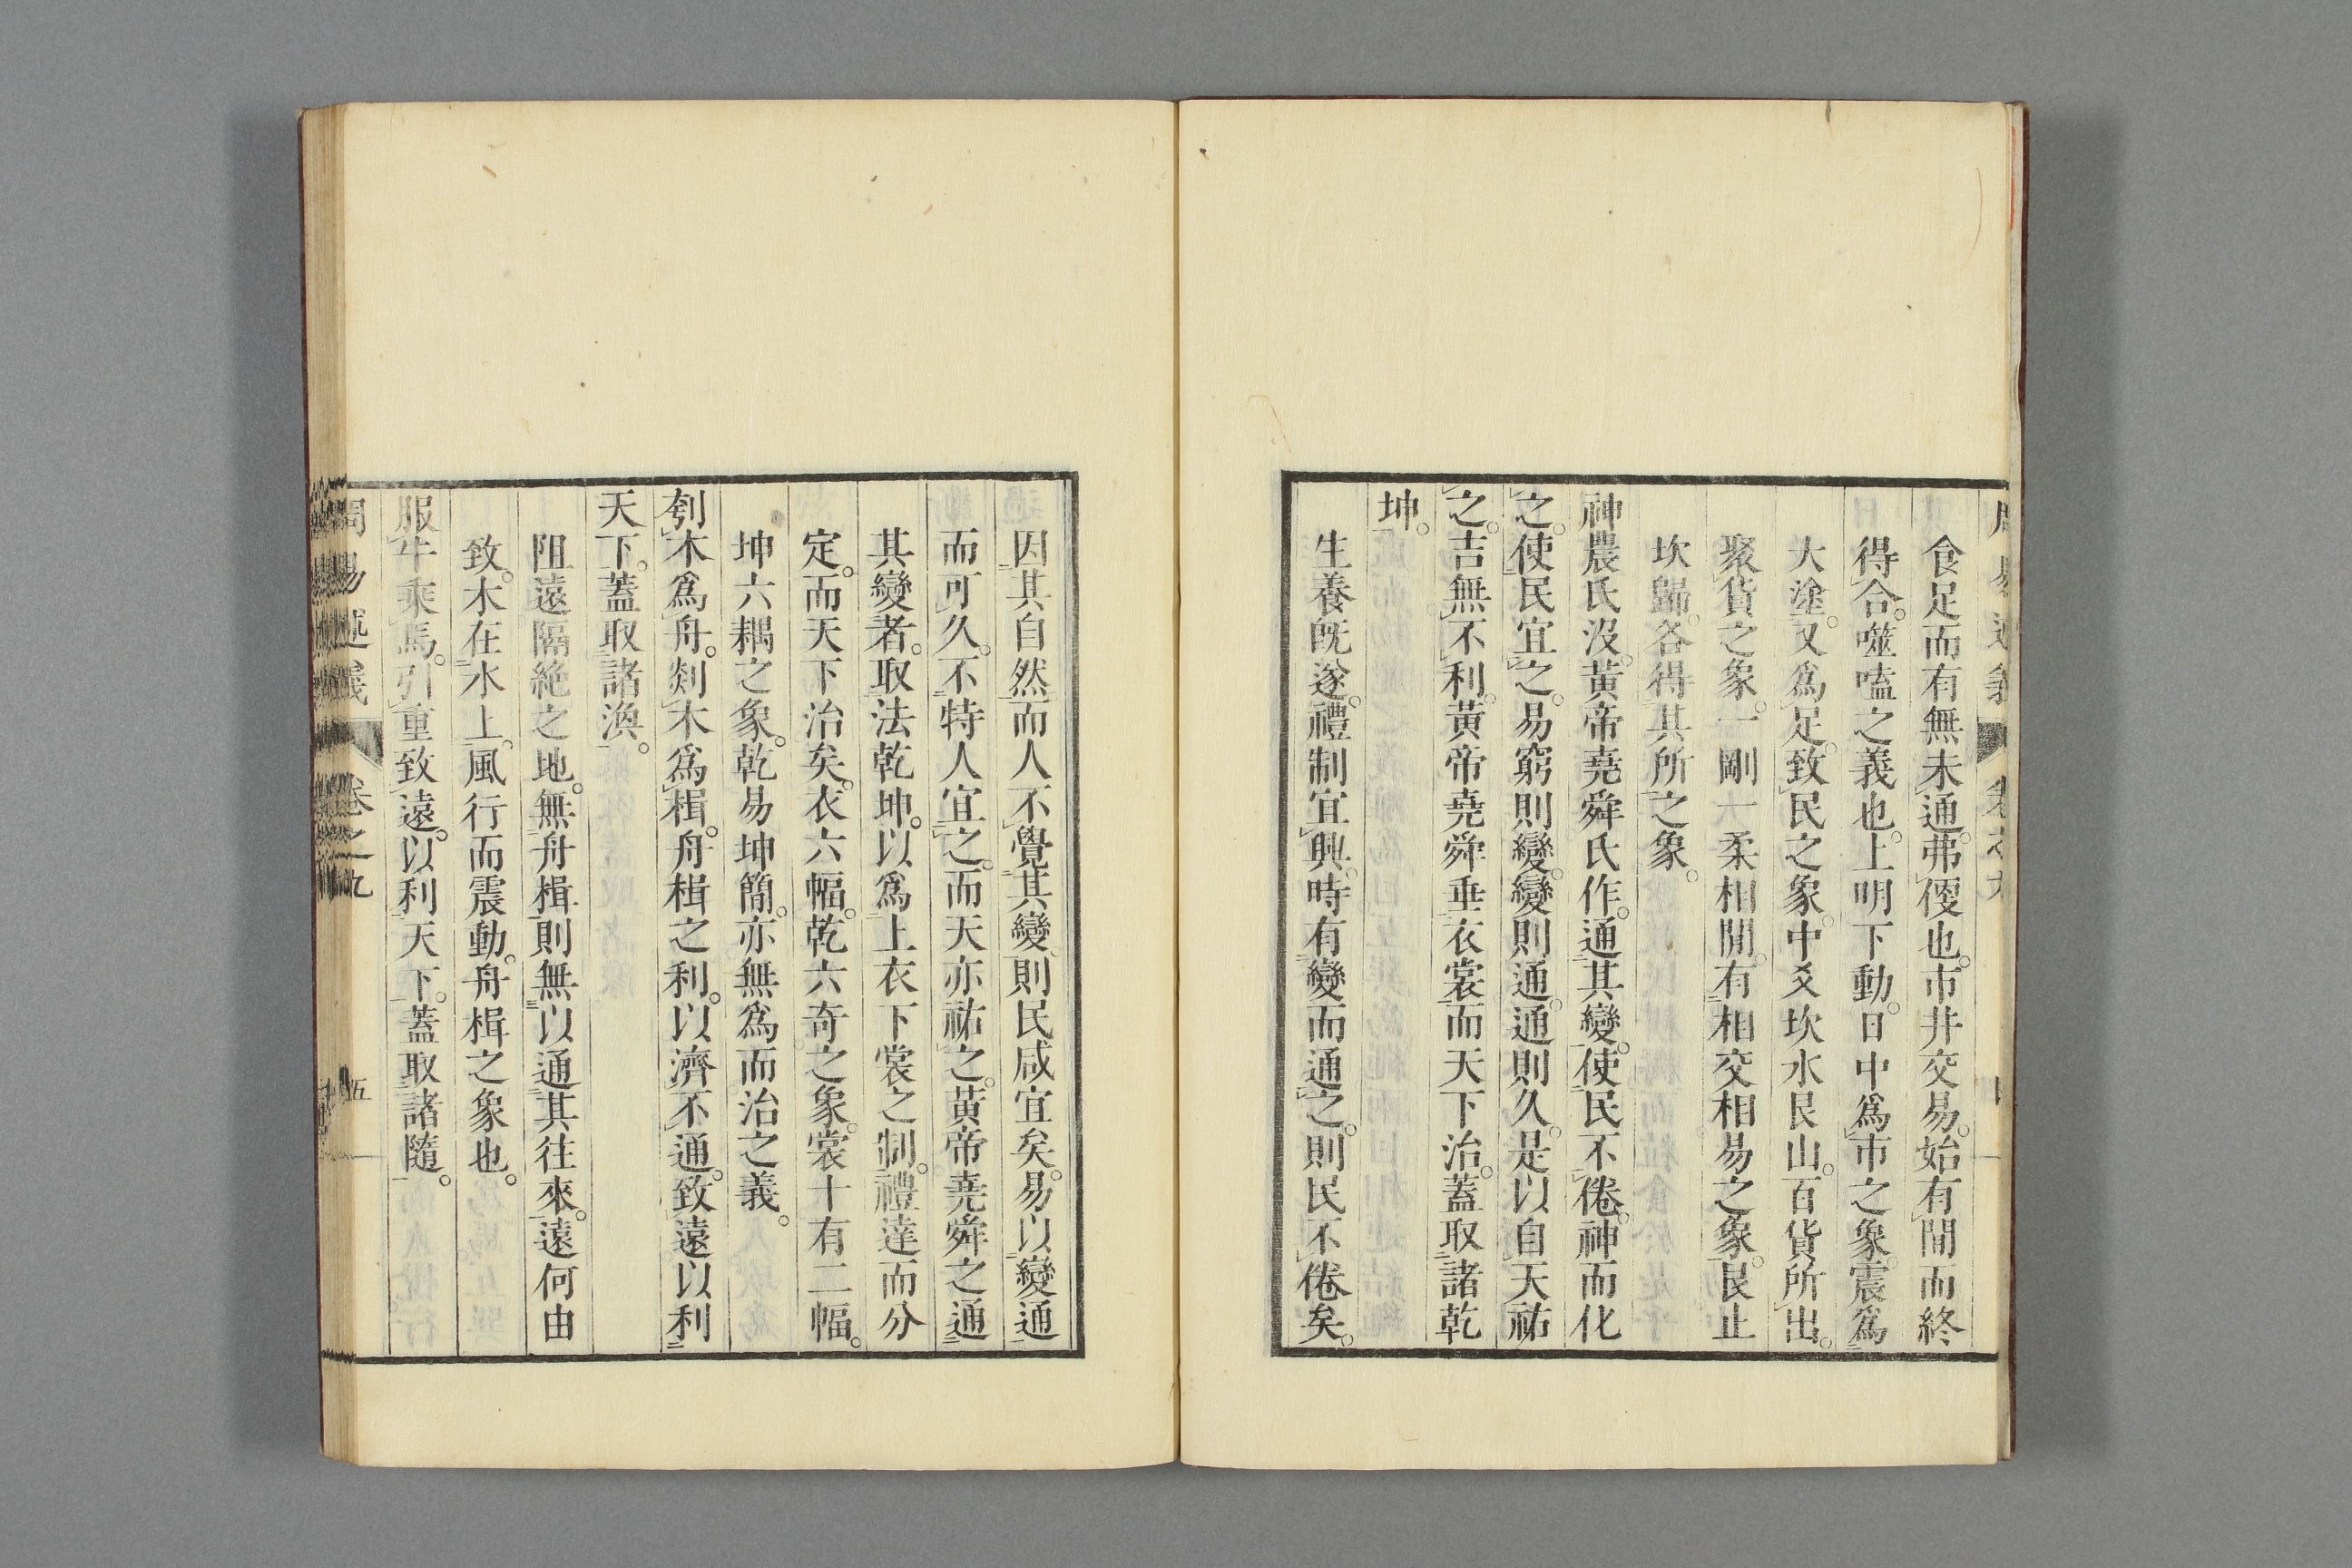 食足而有無未通。弗便也。市井交易。始有間而終
得合。噬嗑之義也。上明下動。日中爲市之象。震爲
大塗。又爲足。致民之象。中爻坎水艮山。百貨所出。
聚貨之象。一剛一柔相間。有相交相易之象。艮止
坎歸。各得其所之象。
神農氏沒。黃帝堯舜氏作。通其變。使民不倦。神而化
之。使民宜之。易窮則變。變則通。通則久。是以自天祐
之。吉無不利。黃帝堯舜垂衣裳而天下治。蓋取諸乾
坤。
生養旣遂。禮制宜興。時有變而通之。則民不倦矣。
因其自然而人不覺其變、則民咸宜矣。易以變通
而可久。不特人宜之。而天亦祐之。黃帝堯舜之通
其變者。取法乾坤。以爲上衣下裳之制。禮達而分
定。而天下治矣。衣六幅。乾六奇之象。裳十有二幅。
坤六耦之象。乾易坤簡。亦無爲而治之義。
刳木爲舟。剡木爲楫。舟楫之利。以濟不通。致遠以利
天下。蓋取諸渙。
阻遠隔絶之地。無舟楫則無以通其往來。遠何由
致。木在水上。風行而震動。舟楫之象也。
服牛乘馬。引重致遠。以利天下。蓋取諸隨。
周易述義 卷之九 五